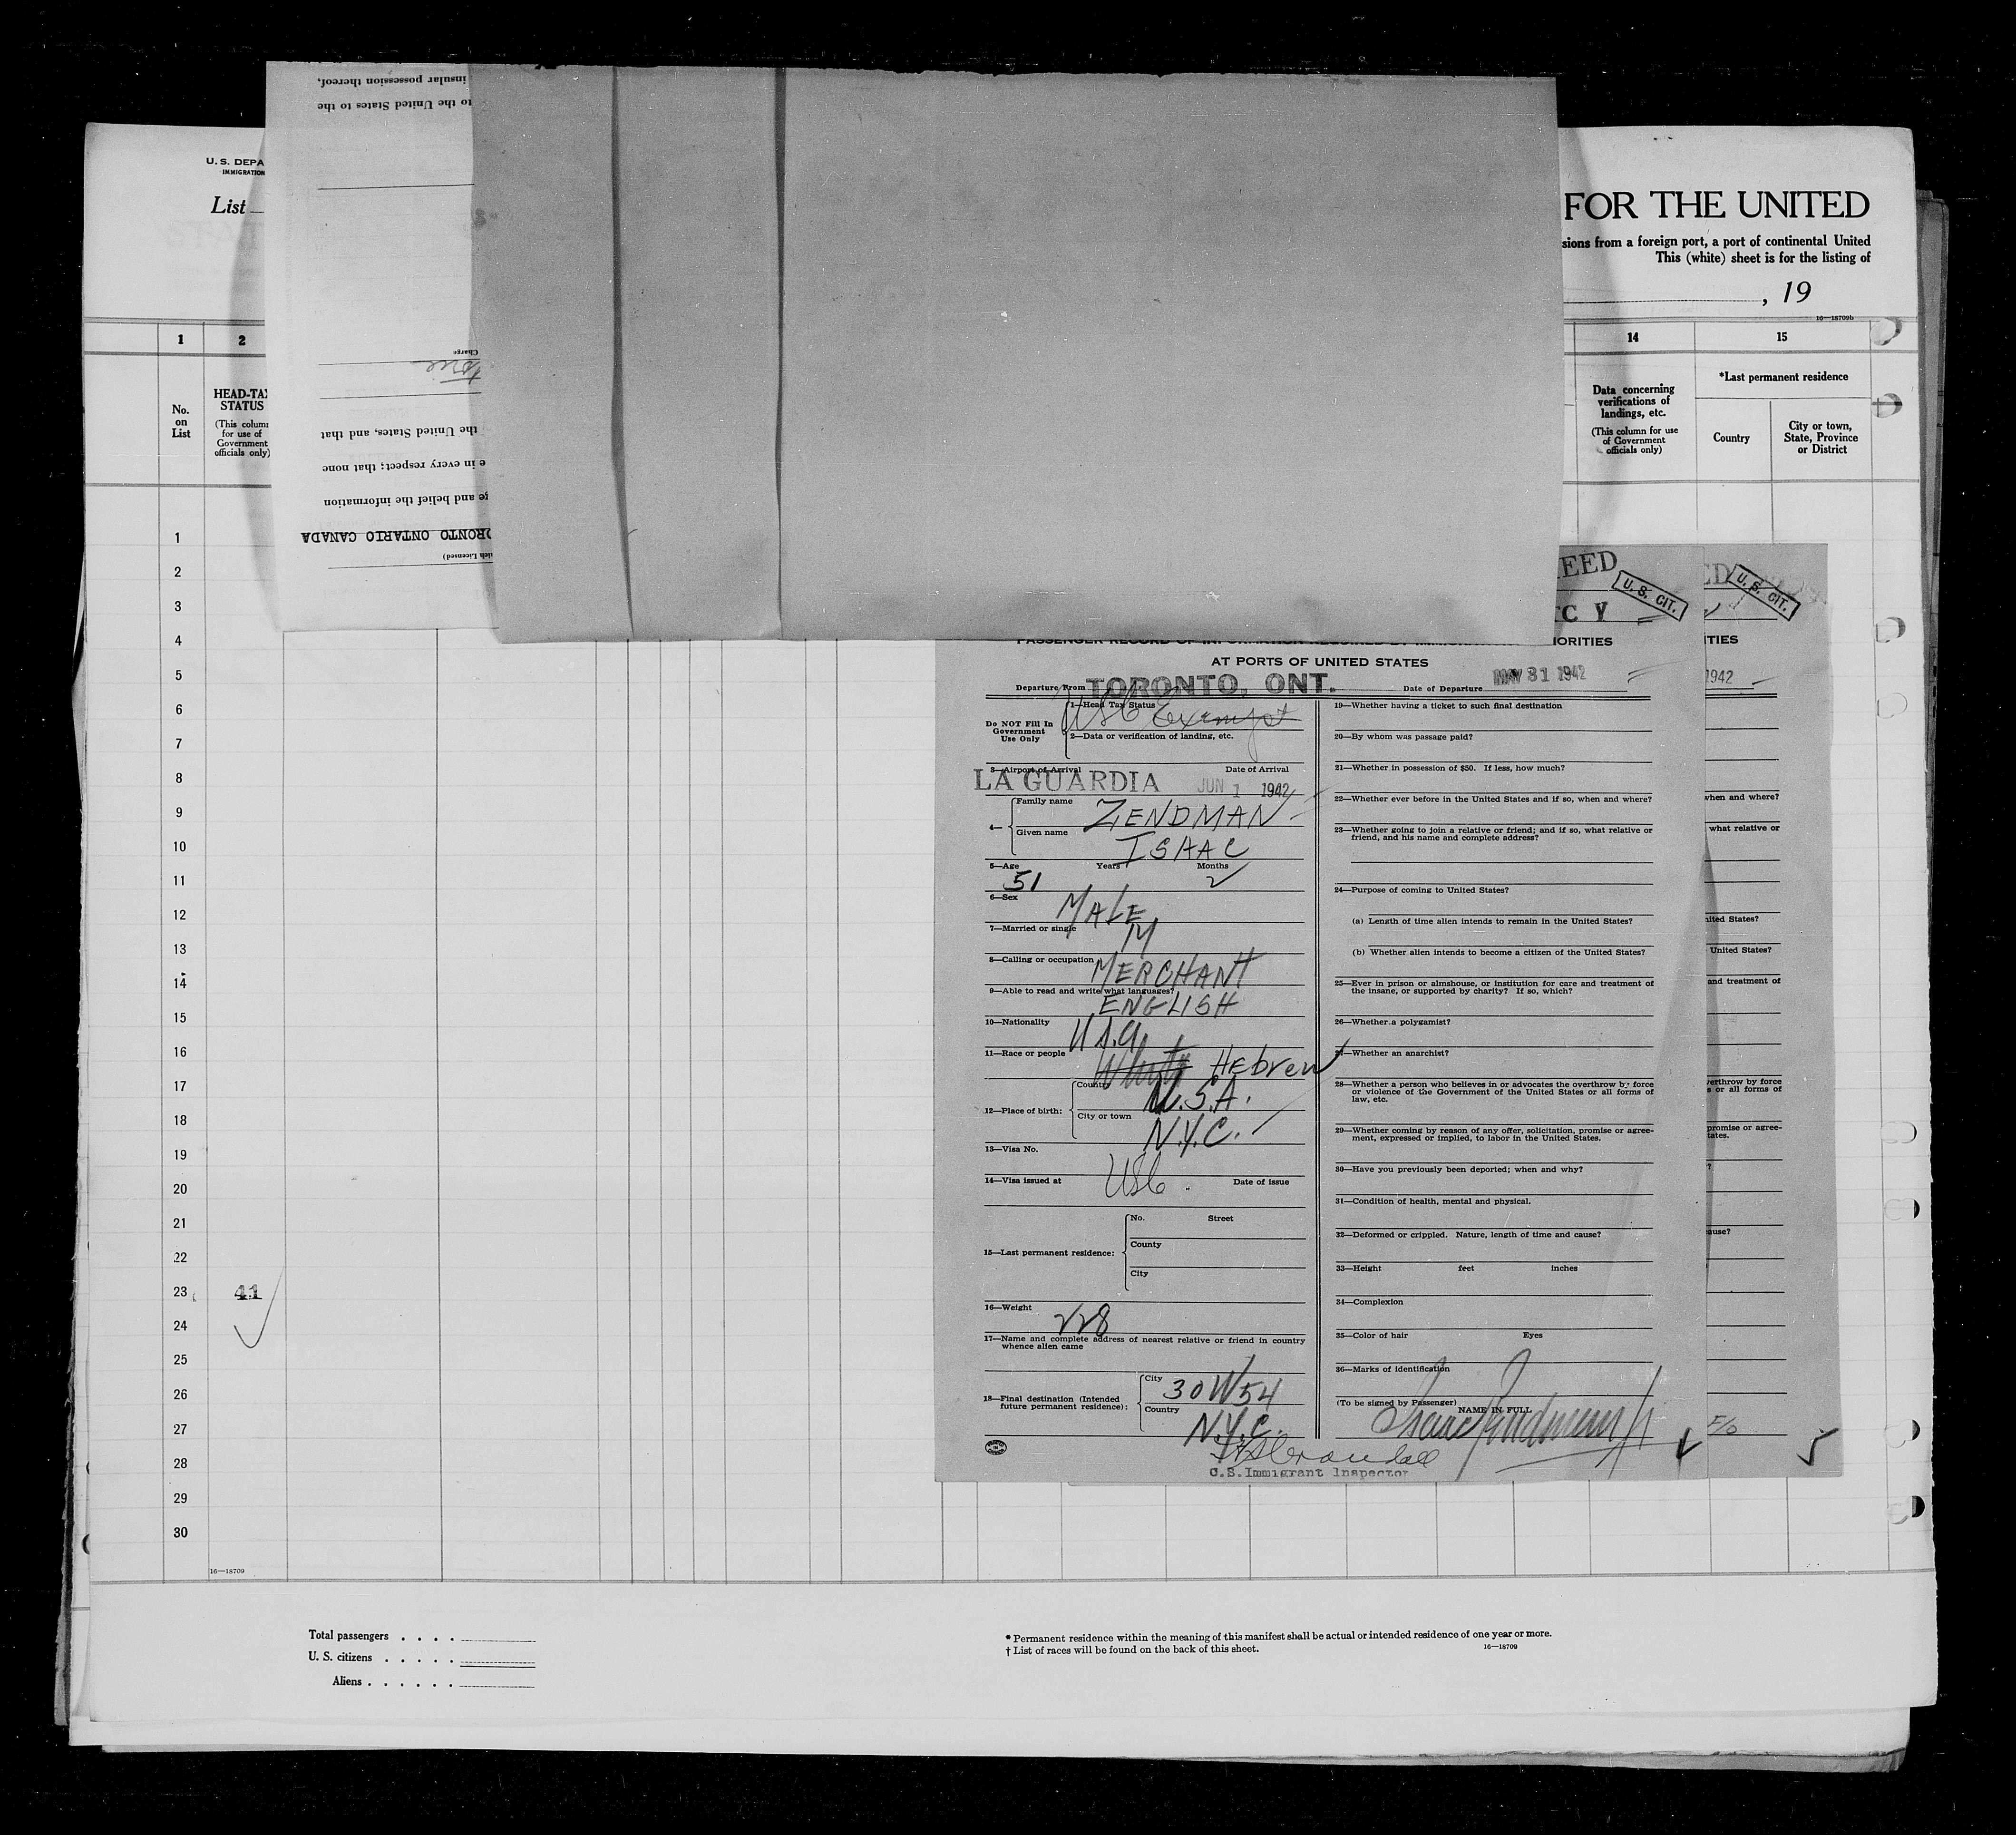 U. S. DEPA
IMMIGRATION
List
insular possession thereof,
to the United States to the
Charge
the United States, and that
e in every respect; that none
ge and belief the information
ORONTO ONTARIO CANADA
ich Licensed)
FOR THE UNITED
sions from a foreign port, a port of continental United
This (white) sheet is for the listing of
, 19
16—18709b
1 2 14 15
No. on List
HEAD-TAX STATUS
(This column for use of Government officials only)
Data concerning verifications of landings, etc.
(This column for use of Government officials only)
*Last permanent residence
Country
City or town, State, Province or District
1
2
3
4
5
6
7
8
9
10
11
12
13
14
15
16
17
18
19
20
21
22
23 41
24
25
26
27
28
29
30
16—18709
EED
U. S. CIT.
TC V
ED
U. S. CIT.
PASSENGER RECORD OF INFORMATION REQUIRED BY IMMIG ORITIES
AT PORTS OF UNITED STATES
Departure From TORONTO, ONT.
Date of Departure MAY 31 1942
Do NOT Fill In Government Use Only
1—Head Tax Status USC Exempt
2—Data or verification of landing, etc.
3—Airport of Arrival Date of Arrival
LA GUARDIA JUN 1 1942
4— Family name ZENDMAN
Given name ISAAC
5—Age Years Months
51 2
6—Sex MALE
7—Married or single M
8—Calling or occupation MERCHANT
9—Able to read and write what languages?
ENGLISH
10—Nationality U.S.A
11—Race or people White Hebrew
12—Place of birth: Country U.S.A.
City or town N.Y.C.
13—Visa No.
USC
14—Visa issued at Date of issue
15—Last permanent residence: No. Street
County
City
16—Weight 228
17—Name and complete address of nearest relative or friend in country
whence alien came
18—Final destination (Intended
future permanent residence): City 30 W 54
Country N.Y.C.
U.S. Immigrant Inspector
19—Whether having a ticket to such final destination
20—By whom was passage paid?
21—Whether in possession of $50. If less, how much?
22—Whether ever before in the United States and if so, when and where?
23—Whether going to join a relative or friend; and if so, what relative or
friend, and his name and complete address?
24—Purpose of coming to United States?
(a) Length of time alien intends to remain in the United States?
(b) Whether alien intends to become a citizen of the United States?
25—Ever in prison or almshouse, or institution for care and treatment of
the insane, or supported by charity? If so, which?
26—Whether a polygamist?
27—Whether an anarchist?
28—Whether a person who believes in or advocates the overthrow by force
or violence of the Government of the United States or all forms of
law, etc.
29—Whether coming by reason of any offer, solicitation, promise or agree-
ment, expressed or implied, to labor in the United States.
30—Have you previously been deported; when and why?
31—Condition of health, mental and physical.
32—Deformed or crippled. Nature, length of time and cause?
33—Height feet inches
34—Complexion
35—Color of hair Eyes
36—Marks of identification
(To be signed by Passenger)
NAME IN FULL
Isaac Zendman
TIES
1942
when and where?
what relative or
ited States?
United States?
and treatment of
verthrow by force
s or all forms of
promise or agree-
tates.
?
ause?
Total passengers . . . .
U. S. citizens . . . . .
Aliens . . . . . .
* Permanent residence within the meaning of this manifest shall be actual or intended residence of one year or more.
† List of races will be found on the back of this sheet.
16—18709